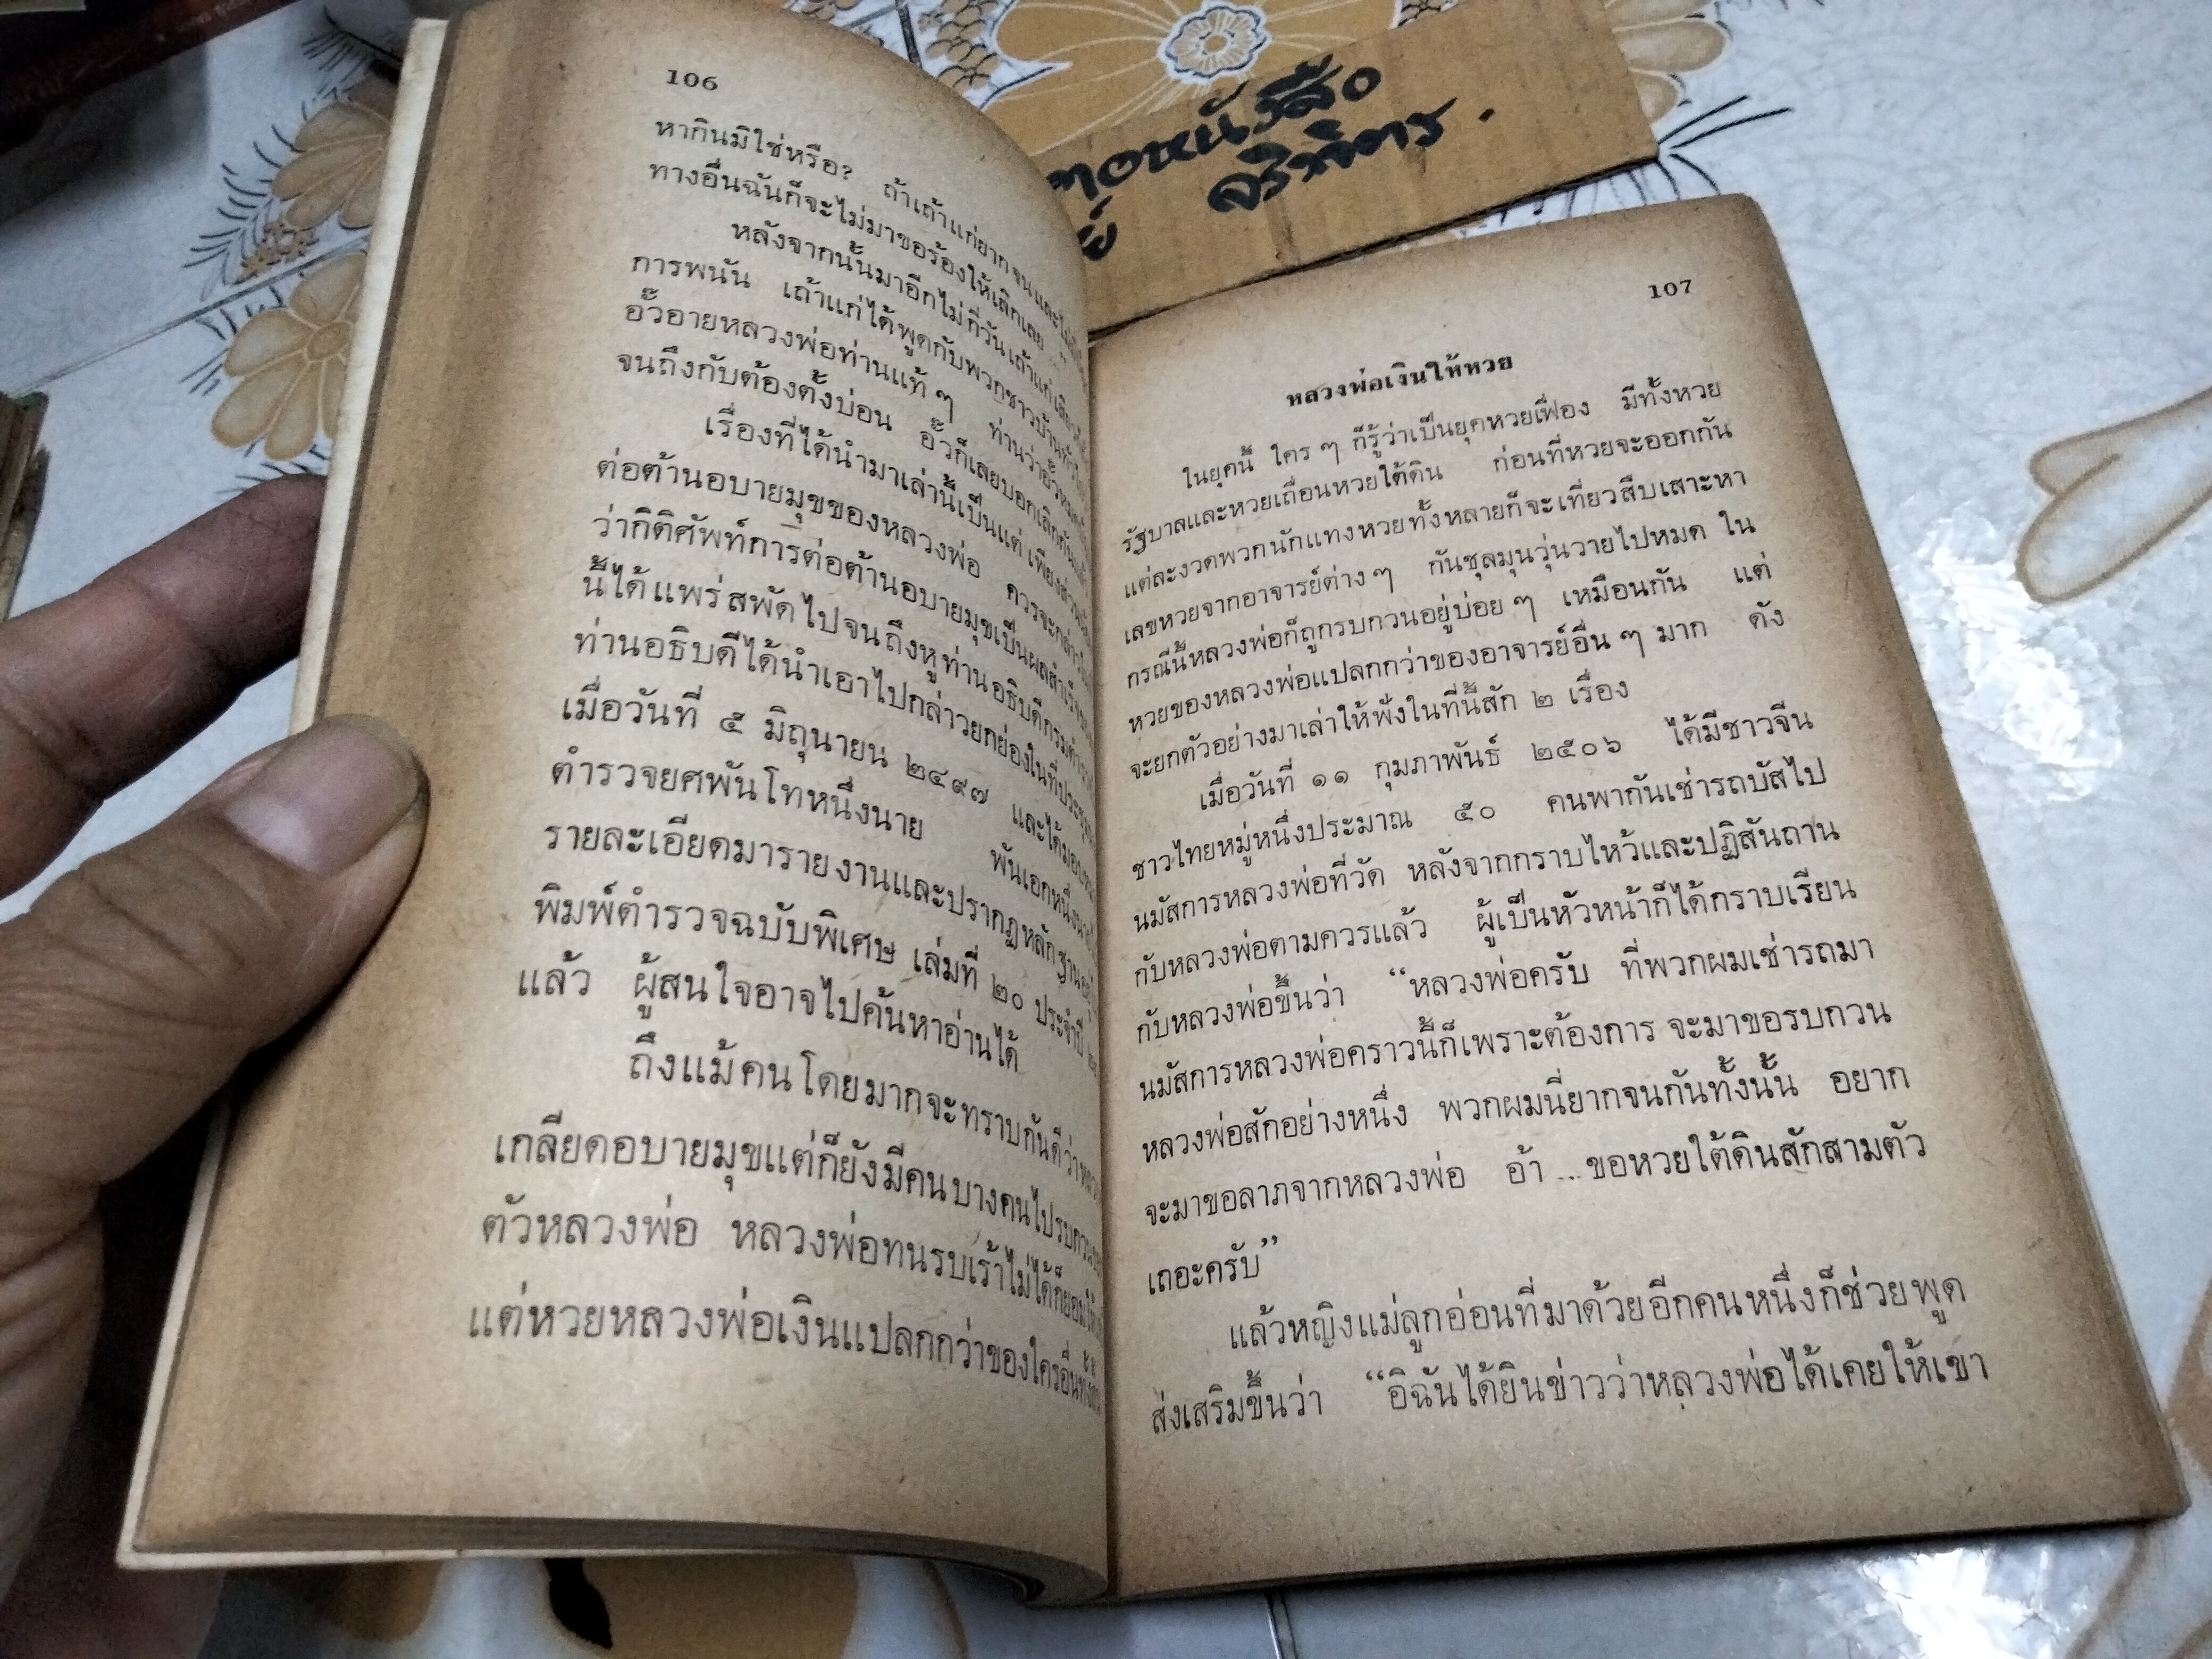 106
หากินมิใช่หรือ? ถ้าเถ้าแก่ยากจนและ
ทางอื่นฉันก็จะไม่มาขอร้องให้เลิกเลย ...”
หลังจากนั้นมาอีกไม่กี่วันเถ้าแก่
การพนัน เถ้าแก่ได้พูดกับพวกชาวบ้าน
อั๊วอายหลวงพ่อท่านแท้ ๆ ท่านว่าอั๊ว
จนถึงกับต้องตั้งบ่อน อั๊วก็เลยบอกเลิกกัน
เรื่องที่ได้นำมาเล่านี้เป็นแต่เพียงส่วน
ต่อต้านอบายมุขของหลวงพ่อ ควรจะกล่าว
ว่ากิติศัพท์การต่อต้านอบายมุขเป็นผลสำเร็จ
นี้ได้แพร่สพัดไปจนถึงหูท่านอธิบดีกรมตำรวจ
ท่านอธิบดีได้นำเอาไปกล่าวยกย่องในที่ประชุม
เมื่อวันที่ ๕ มิถุนายน ๒๔๙๗ และได้มอบ
ตำรวจยศพันโทหนึ่งนาย พันเอกหนึ่งนาย
รายละเอียดมารายงานและปรากฏหลักฐาน
พิมพ์ตำรวจฉบับพิเศษ เล่มที่ ๒๐ ประจำปี
แล้ว ผู้สนใจอาจไปค้นหาอ่านได้
ถึงแม้คนโดยมากจะทราบกันดีว่าหลวง
เกลียดอบายมุขแต่ก็ยังมีคนบางคนไปรบกวน
ตัวหลวงพ่อ หลวงพ่อทนรบเร้าไม่ได้ก็ยอมให้
แต่หวยหลวงพ่อเงินแปลกกว่าของใครอื่นทั้ง
107
หลวงพ่อเงินให้หวย
ในยุคนี้ ใคร ๆ ก็รู้ว่าเป็นยุคหวยเฟื่อง มีทั้งหวย
รัฐบาลและหวยเถื่อนหวยใต้ดิน ก่อนที่หวยจะออกกัน
แต่ละงวดพวกนักแทงหวยทั้งหลายก็จะเที่ยวสืบเสาะหา
เลขหวยจากอาจารย์ต่าง ๆ กันชุลมุนวุ่นวายไปหมด ใน
กรณีนี้หลวงพ่อก็ถูกรบกวนอยู่บ่อย ๆ เหมือนกัน แต่
หวยของหลวงพ่อแปลกกว่าของอาจารย์อื่น ๆ มาก ดัง
จะยกตัวอย่างมาเล่าให้ฟังในที่นี้สัก ๒ เรื่อง
เมื่อวันที่ ๑๑ กุมภาพันธ์ ๒๕๐๖ ได้มีชาวจีน
ชาวไทยหมู่หนึ่งประมาณ ๕๐ คนพากันเช่ารถบัสไป
นมัสการหลวงพ่อที่วัด หลังจากกราบไหว้และปฏิสันถาน
กับหลวงพ่อตามควรแล้ว ผู้เป็นหัวหน้าก็ได้กราบเรียน
กับหลวงพ่อขึ้นว่า “หลวงพ่อครับ ที่พวกผมเช่ารถมา
นมัสการหลวงพ่อคราวนี้ก็เพราะต้องการ จะมาขอรบกวน
หลวงพ่อสักอย่างหนึ่ง พวกผมนี่ยากจนกันทั้งนั้น อยาก
จะมาขอลาภจากหลวงพ่อ อ้า ...ขอหวยใต้ดินสักสามตัว
เถอะครับ”
แล้วหญิงแม่ลูกอ่อนที่มาด้วยอีกคนหนึ่งก็ช่วยพูด
ส่งเสริมขึ้นว่า “อิฉันได้ยินข่าวว่าหลวงพ่อได้เคยให้เขา